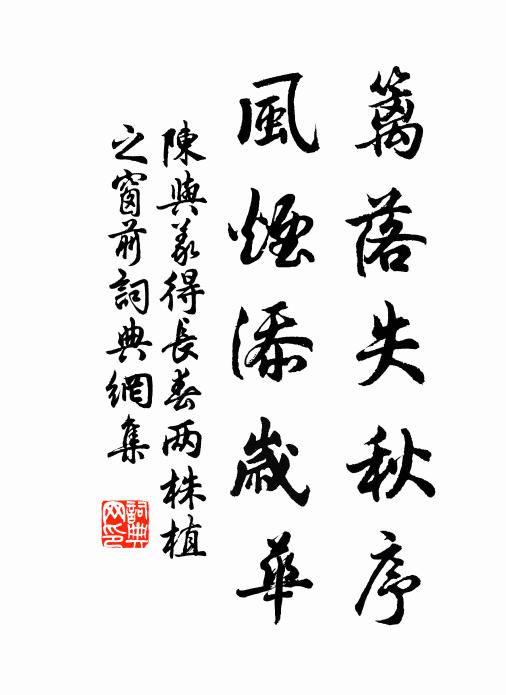 籬落失秋序
風煙添歲華
陳與義得長春兩株植
之窗前詞典網集
詞典
网印